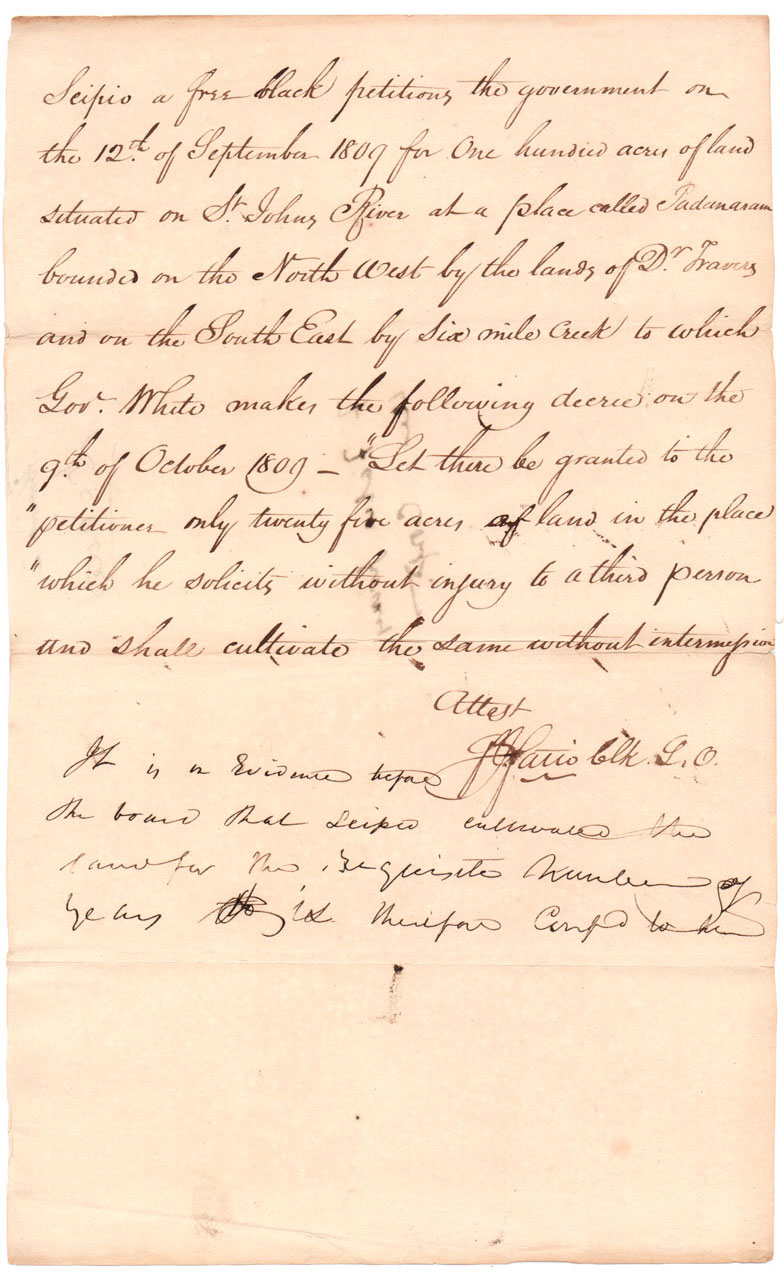 Scipio a free black petitions the government on
the 12th. of September 1809 for One hundred acres of land
situated on St. Johns River at a place called Padanaram
bounded on the North West by the lands of Dr. Travers
and on the South East by Six mile Creek to which
Govr. White makes the following decree on the
9th. of October 1809 – "Let there be granted to the
"petitioner only twenty five acres of land in the place
"which he solicits without injury to a third person
and shall cultivate the same without intermission
Attest
Clk. L. O.
It is in Evidence before
the board that Scipio cultivated the
land for the requisite Number of
years it is therefore Confd to him